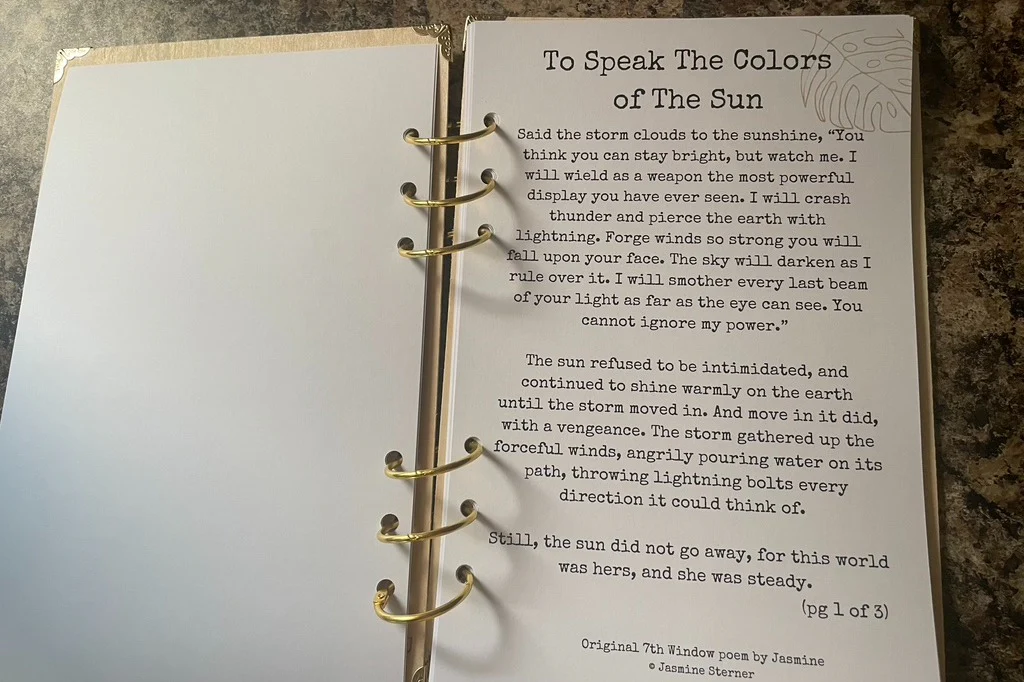 To Speak The Colors
of The Sun
Said the storm clouds to the sunshine, “You
think you can stay bright, but watch me. I
will wield as a weapon the most powerful
display you have ever seen. I will crash
thunder and pierce the earth with
lightning. Forge winds so strong you will
fall upon your face. The sky will darken as I
rule over it. I will smother every last beam
of your light as far as the eye can see. You
cannot ignore my power.”
The sun refused to be intimidated, and
continued to shine warmly on the earth
until the storm moved in. And move in it did,
with a vengeance. The storm gathered up the
forceful winds, angrily pouring water on its
path, throwing lightning bolts every
direction it could think of.
Still, the sun did not go away, for this world
was hers, and she was steady.
(pg 1 of 3)
Original 7th Window poem by Jasmine
© Jasmine Sterner